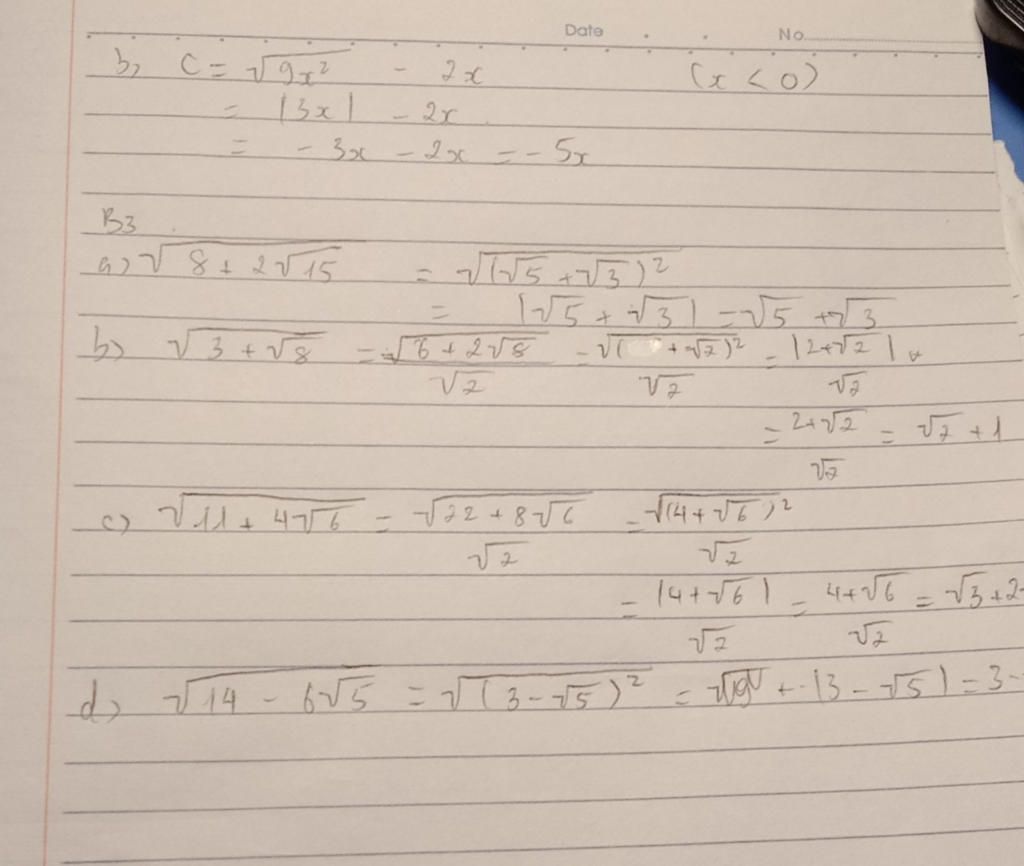 Date No
b, C = √9x² - 2x (x < 0)
= |3x| - 2x
= - 3x - 2x = - 5x
B3
a) √8 + 2√15 = √(√5 + √3)²
= |√5 + √3| = √5 + √3
b) √3 + √8 = √6 + 2√8 / √2 = √( + √2)² / √2 = |2+√2| / √2
= 2+√2 / √2 = √2 + 1
c) √11 + 4√6 = √22 + 8√6 / √2 = √(4 + √6)² / √2
= |4+√6| / √2 = 4+√6 / √2 = √3 + 2
d) √14 - 6√5 = √(3-√5)² = |3 - √5| = 3 -